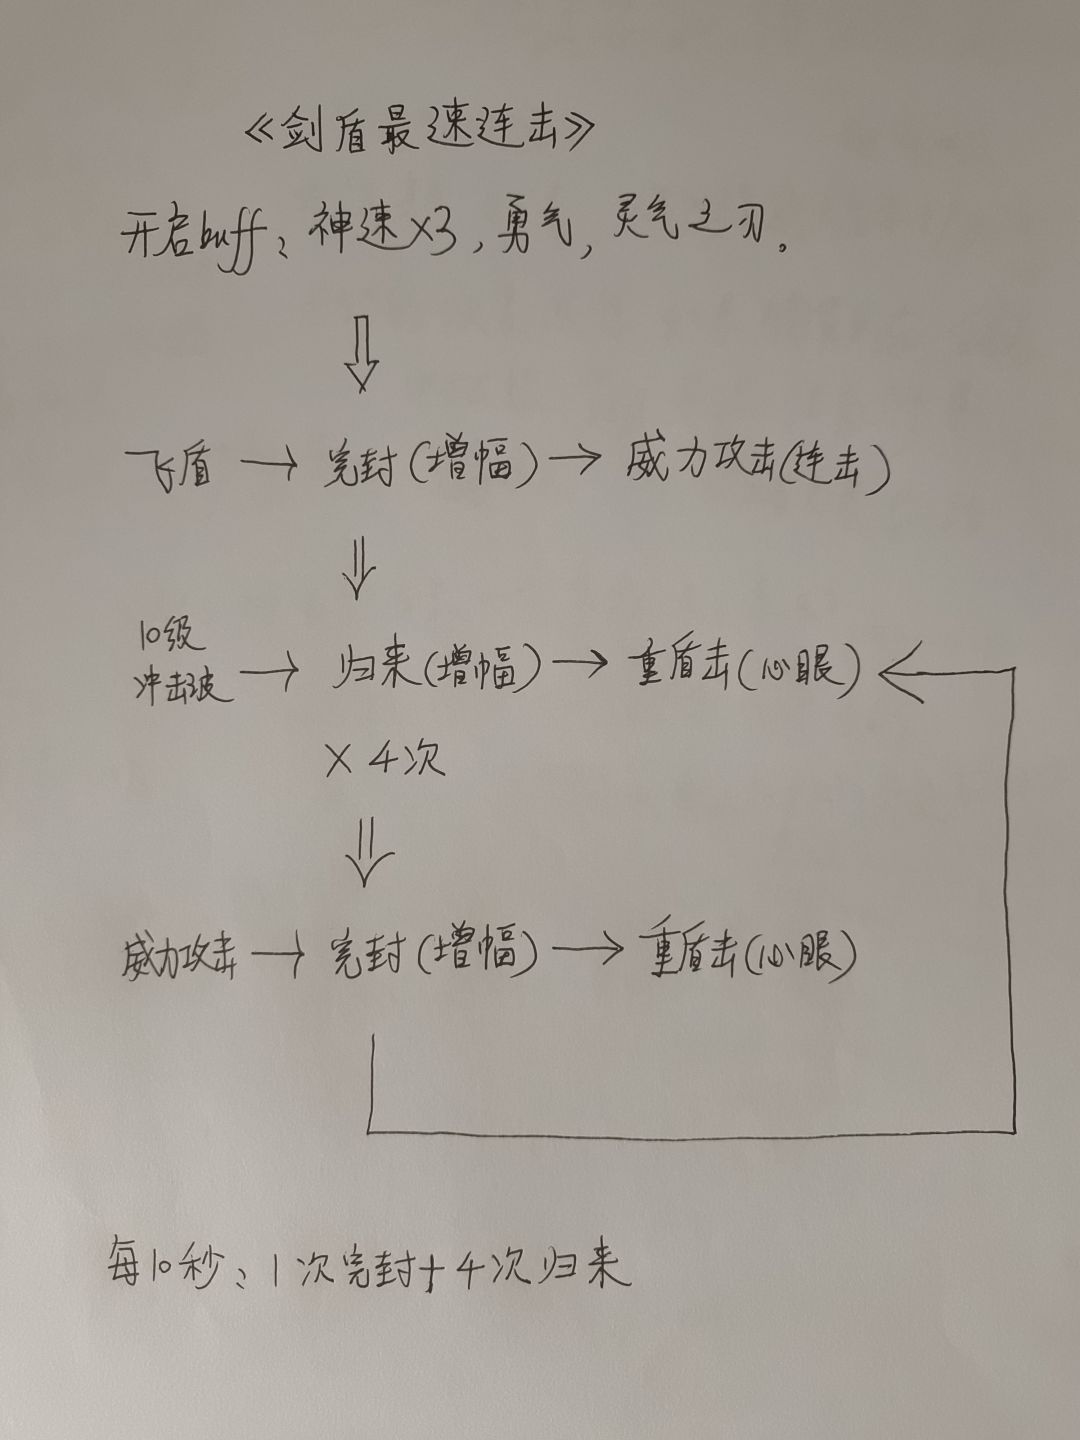 《剑盾最速连击》
开启buff:神速×3,勇气,灵气之刃。
飞盾→完封(增幅)→威力攻击(连击)
10级
冲击波→归来(增幅)→重盾击(心眼)
×4次
威力攻击→完封(增幅)→重盾击(心眼)
每10秒:1次完封+4次归来